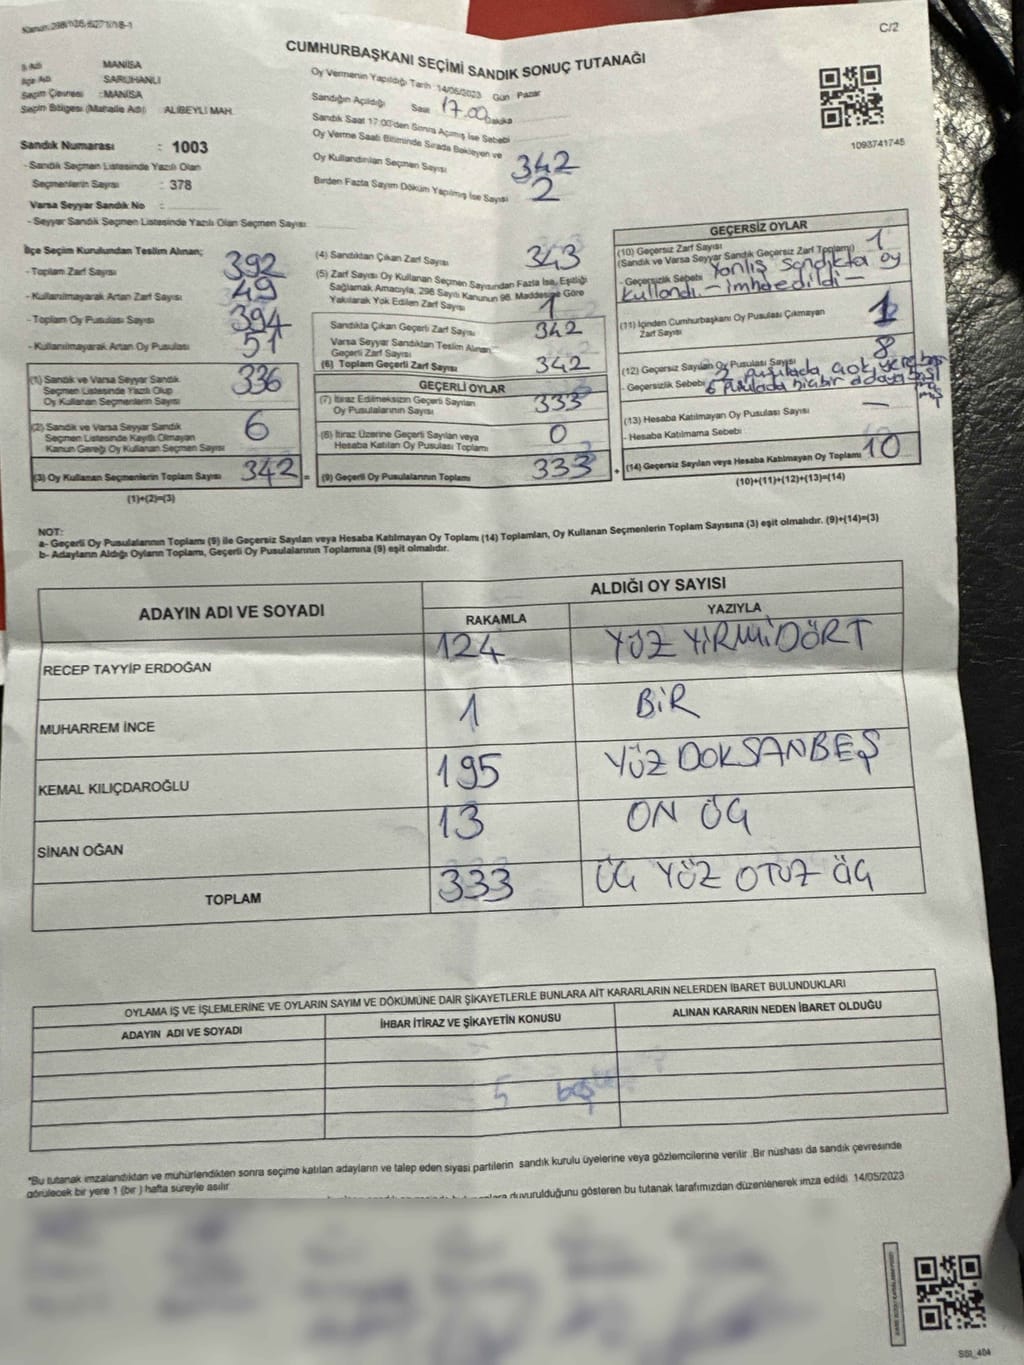 C/2
CUMHURBAŞKANI SEÇİMİ SANDIK SONUÇ TUTANAĞI
MANİSA
SARUHANLI
Seçim Çevresi : MANİSA
Seçim Bölgesi (Mahalle Adı) ALİBEYLİ MAH.
Sandık Numarası : 1003
- Sandık Seçmen Listesinde Yazılı Olan
Seçmenlerin Sayısı : 378
Varsa Seyyar Sandık No :
- Seyyar Sandık Seçmen Listesinde Yazılı Olan Seçmen Sayısı
Oy Vermenin Yapıldığı Tarih : 14/05/2023 Gün : Pazar
Sandığın Açıldığı Saat 17.00 Dakika
Sandık Saat 17:00'den Sonra Açılmış İse Sebebi
Oy Verme Saati Bitiminde Sırada Bekleyen ve
Oy Kullandırılan Seçmen Sayısı 342
Birden Fazla Sayım Döküm Yapılmış İse Sayısı 2
1093741745
İlçe Seçim Kurulundan Teslim Alınan;
- Toplam Zarf Sayısı 392
- Kullanılmayarak Artan Zarf Sayısı 49
- Toplam Oy Pusulası Sayısı 394
- Kullanılmayarak Artan Oy Pusulası 51
(1) Sandık ve Varsa Seyyar Sandık
Seçmen Listesinde Yazılı Olup
Oy Kullanan Seçmenlerin Sayısı 336
(2) Sandık ve Varsa Seyyar Sandık
Seçmen Listesinde Kayıtlı Olmayan
Kanun Gereği Oy Kullanan Seçmen Sayısı 6
(3) Oy Kullanan Seçmenlerin Toplam Sayısı 342 =
(1)+(2)=(3)
(4) Sandıktan Çıkan Zarf Sayısı 343
(5) Zarf Sayısı Oy Kullanan Seçmen Sayısından Fazla İse, Eşitliği
Sağlamak Amacıyla, 298 Sayılı Kanunun 98. Maddesine Göre
Yakılarak Yok Edilen Zarf Sayısı 1
Sandıkta Çıkan Geçerli Zarf Sayısı 342
Varsa Seyyar Sandıktan Teslim Alınan
Geçerli Zarf Sayısı
(6) Toplam Geçerli Zarf Sayısı 342
GEÇERLİ OYLAR
(7) İtiraz Edilmeksizin Geçerli Sayılan
Oy Pusulalarının Sayısı 333
(8) İtiraz Üzerine Geçerli Sayılan veya
Hesaba Katılan Oy Pusulası Toplamı 0
(9) Geçerli Oy Pusulalarının Toplamı 333 +
GEÇERSİZ OYLAR
(10) Geçersiz Zarf Sayısı 1
(Sandık ve Varsa Seyyar Sandık Geçersiz Zarf Toplamı)
- Geçersizlik Sebebi Yanlış sandıkta oy
kullandı. - imha edildi -
(11) İçinden Cumhurbaşkanı Oy Pusulası Çıkmayan
Zarf Sayısı 1
(12) Geçersiz Sayılan Oy Pusulası Sayısı 8
- Geçersizlik Sebebi
(13) Hesaba Katılmayan Oy Pusulası Sayısı —
- Hesaba Katılmama Sebebi
(14) Geçersiz Sayılan veya Hesaba Katılmayan Oy Toplamı 10
(10)+(11)+(12)+(13)=(14)
NOT:
a- Geçerli Oy Pusulalarının Toplamı (9) ile Geçersiz Sayılan veya Hesaba Katılmayan Oy Toplamı (14) Toplamları, Oy Kullanan Seçmenlerin Toplam Sayısına (3) eşit olmalıdır. (9)+(14)=(3)
b- Adayların Aldığı Oyların Toplamı, Geçerli Oy Pusulalarının Toplamına (9) eşit olmalıdır.
ADAYIN ADI VE SOYADI
ALDIĞI OY SAYISI
RAKAMLA YAZIYLA
RECEP TAYYİP ERDOĞAN 124 YÜZ YİRMİDÖRT
MUHARREM İNCE 1 BİR
KEMAL KILIÇDAROĞLU 195 YÜZ DOKSANBEŞ
SİNAN OĞAN 13 ON ÜÇ
TOPLAM 333 ÜÇ YÜZ OTUZ ÜÇ
OYLAMA İŞ VE İŞLEMLERİNE VE OYLARIN SAYIM VE DÖKÜMÜNE DAİR ŞİKAYETLERLE BUNLARA AİT KARARLARIN NELERDEN İBARET BULUNDUKLARI
ADAYIN ADI VE SOYADI İHBAR İTİRAZ VE ŞİKAYETİN KONUSU ALINAN KARARIN NEDEN İBARET OLDUĞU
5
*Bu tutanak imzalandıktan ve mühürlendikten sonra seçime katılan adayların ve talep eden siyasi partilerin sandık kurulu üyelerine veya gözlemcilerine verilir. Bir nüshası da sandık çevresinde
görülecek bir yere 1 (bir ) hafta süreyle asılır.
duyurulduğunu gösteren bu tutanak tarafımızdan düzenlenerek imza edildi. 14/05/2023